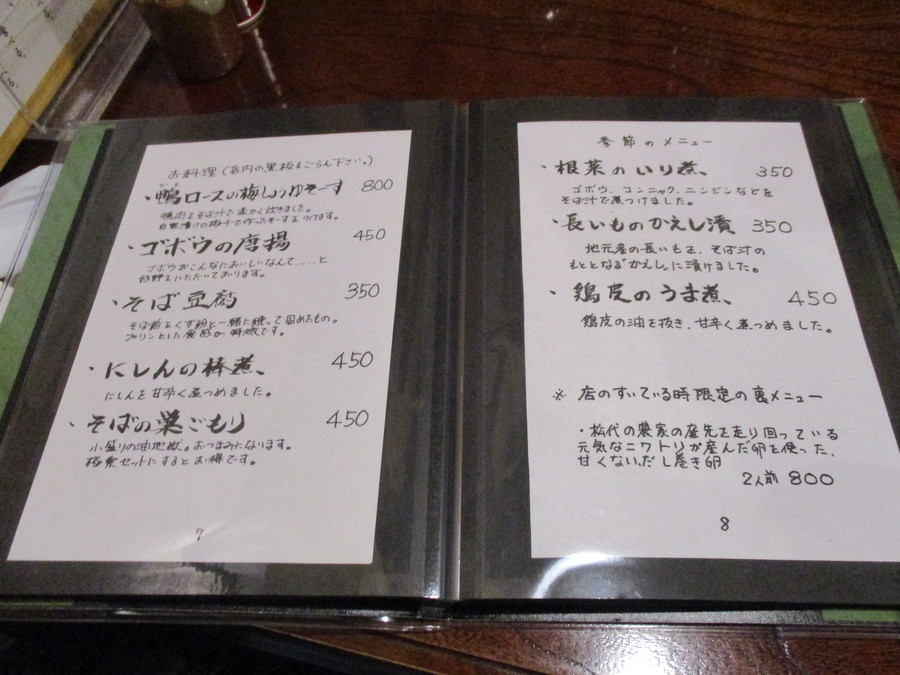 お料理(店内の黒板もごらん下さい。)
・鴨ロースの梅しょうゆそーす 800
鴨肉をそば汁で柔かく炊きました。
自家漬けの梅干で作ったそーすをつけます。
・ゴボウの唐揚 450
ゴボウがこんなにおいしいなんて.....と
好評をいただいております。
・そば豆腐 350
そば粉をくず粉と一緒に練って固めたもの。
プリンとした食感が特徴です。
・にしんの棒煮、 450
にしんを甘辛く煮つめました。
・そばの巣ごもり 450
小盛りの油地獄。おつまみになります。
セットにするとお得です。
7
季節のメニュー
・根菜のいり煮、 350
ゴボウ、コンニャク、ニンジンなどを
そば汁で煮つけました。
・長いものかえし漬 350
地元産の長いもを、そば汁の
もととなる"かえし"に漬けました。
・鶏皮のうま煮、 450
鶏皮の油を抜き、甘辛く煮つめました。
※ 店のすいている時限定の裏メニュー
・松代の農家の庭先を走り回っている
元気なニワトリが産んだ卵を使った、
甘くないだし巻き卵
2人前 800
8